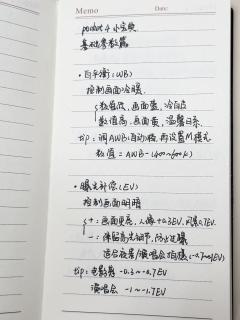 Memo
Date:
pocket 4 小宝典
基础参数篇
· 白平衡 (WB)
控制画面冷暖
数值低,画面蓝,冷白皮
数值高,画面黄,温馨日系
tip:调AWB(自动)档,再设置M模式
数值 = AWB -(400~600k)
· 曝光补偿 (EV)
控制画面明暗
+:画面更亮,人像+0.3EV,风景0.7EV
-:保留高光细节,防止过曝
适合夜景/演唱会拍摄
tip:电影感 -0.3~-0.7EV
演唱会 -1~-1.7EV